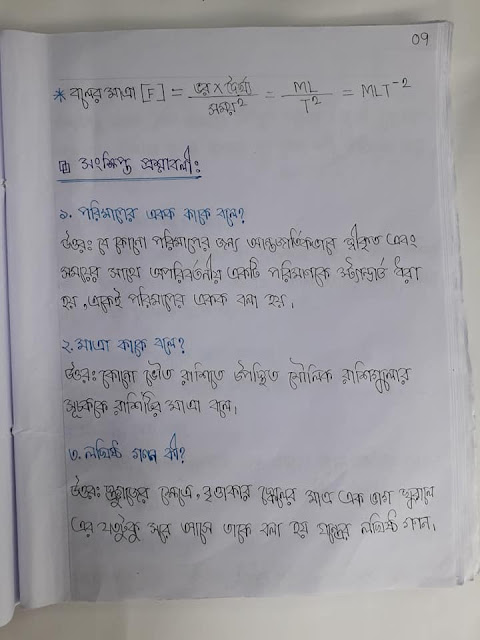 09
* বলের মাত্রা [F] = ভর X দৈর্ঘ্য / সময়² = ML / T² = MLT⁻²
সংক্ষিপ্ত প্রশ্নাবলী:
১. পরিমাপের একক কাকে বলে?
উত্তর: যে কোনো পরিমাপের জন্য আন্তর্জাতিকভাবে স্বীকৃত এবং
সময়ের সাথে অপরিবর্তনীয় একটি পরিমাণকে স্ট্যান্ডার্ড ধরা
হয়, একেই পরিমাপের একক বলা হয়।
২. মাত্রা কাকে বলে?
উত্তর: কোনো ভৌত রাশিতে উপস্থিত মৌলিক রাশিগুলোর
সূচককে রাশিটির মাত্রা বলে।
৩. লঘিষ্ঠ গণন কী?
উত্তর: স্ক্রুগজের ক্ষেত্রে, বৃত্তাকার স্কেলের মাত্র এক ভাগ ঘুরালে
এর যতটুকু সরে আসে তাকে বলা হয় যন্ত্রের লঘিষ্ঠ গণন।